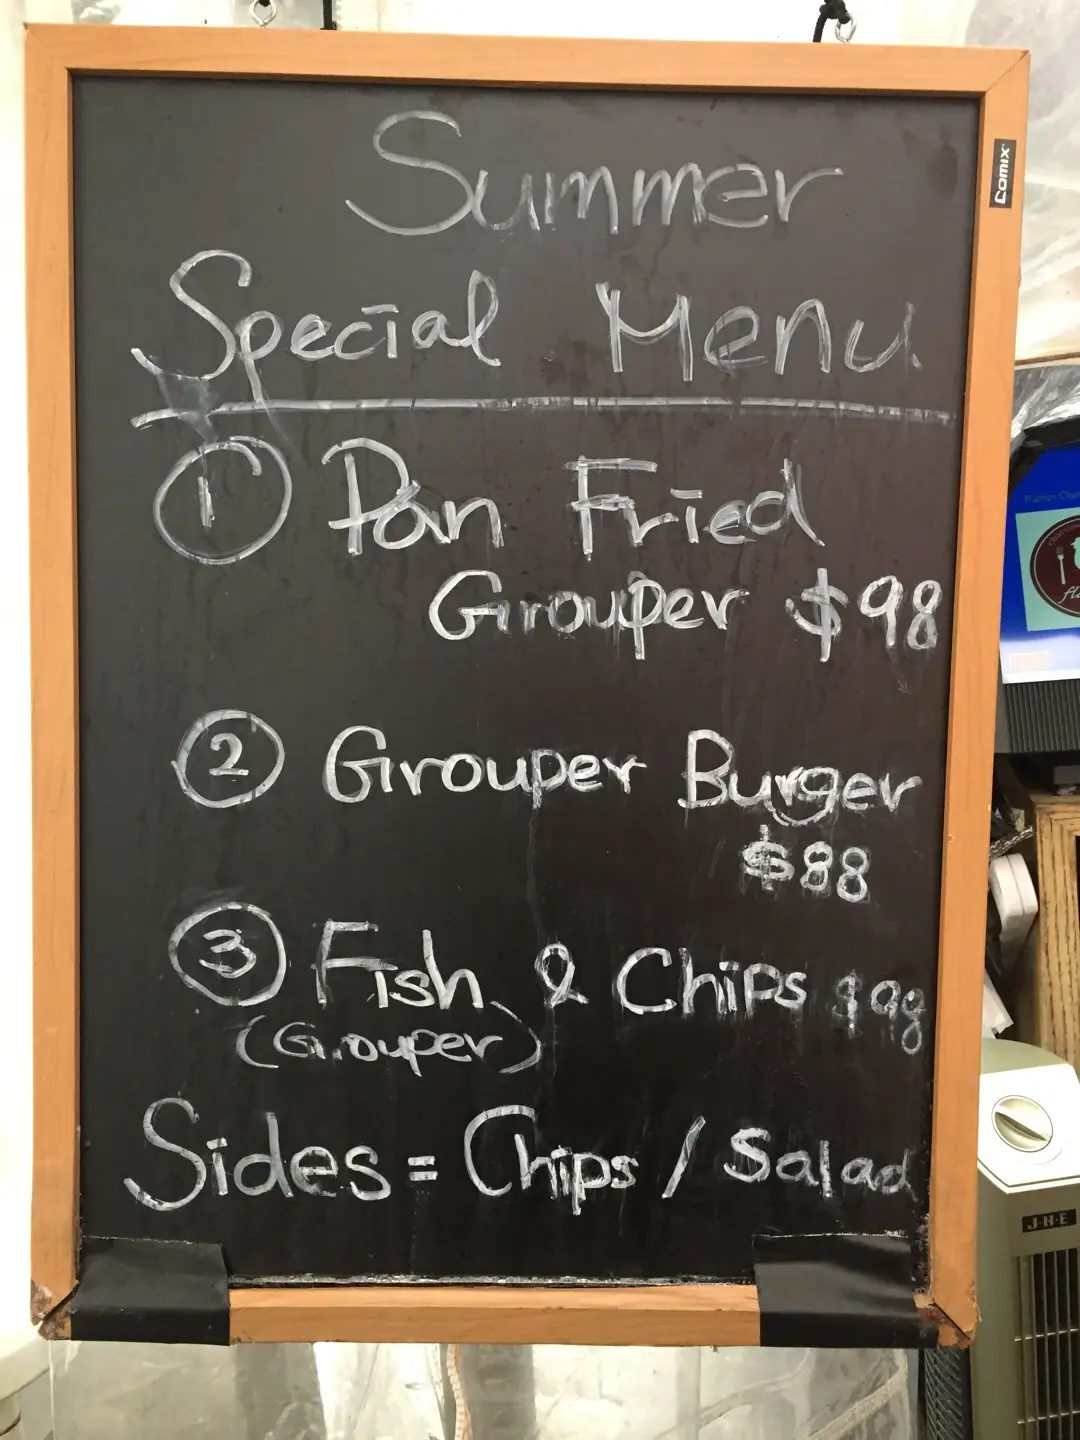 Summer
Special Menu
① Pan Fried
Grouper $98
② Grouper Burger
$88
③ Fish & Chips $98
(Grouper)
Sides = Chips / Salad
COMIX
J·H·E